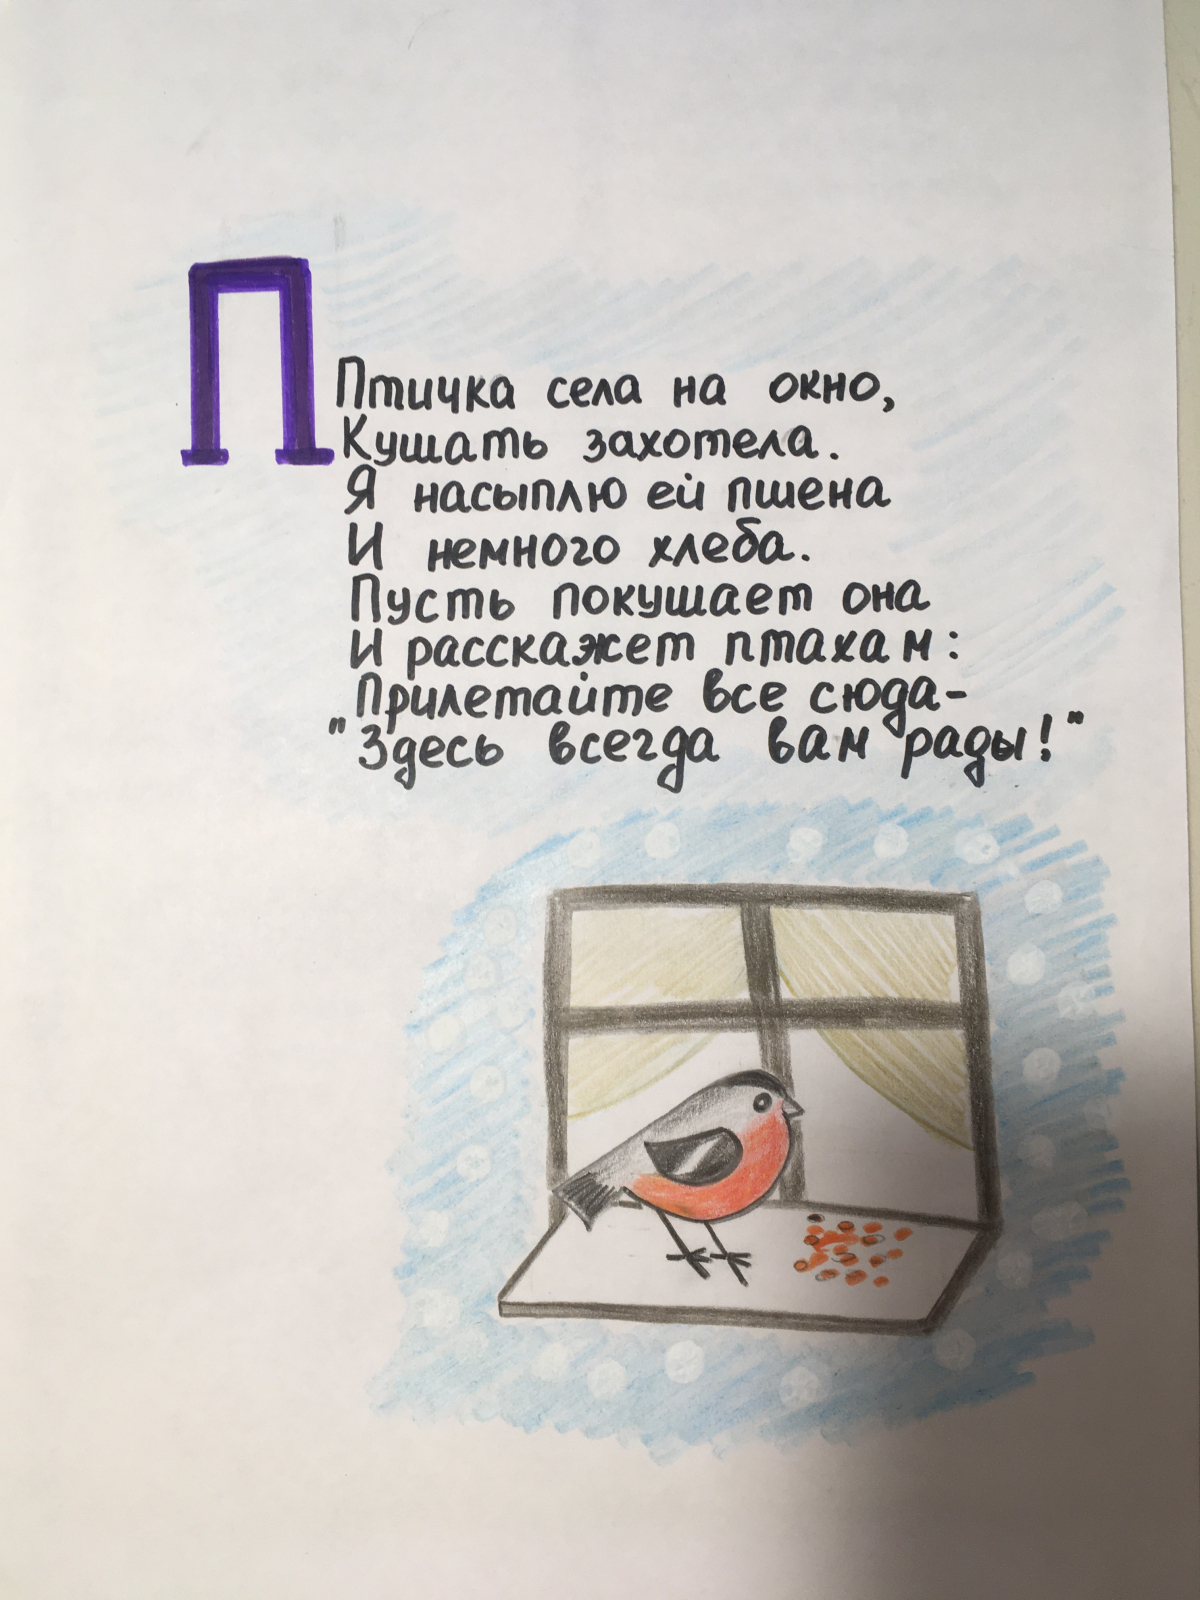 П
Птичка села на окно,
Кушать захотела.
Я насыплю ей пшена
И немного хлеба.
Пусть покушает она
И расскажет птахам:
Прилетайте все сюда-
"Здесь всегда вам рады!"